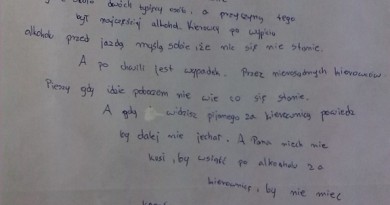 dwóch typów osób, a przyczyną tego
był najczęściej alkohol. Kierowcy po wypiciu
alkoholu przed jazdą myślą sobie, że nic się nie stanie.
A po chwili jest wypadek. Przez nierozsądnych kierowców
Pieszy gdy idzie poboczem nie wie co się stanie.
A gdy widzisz pijanego za kierownicą powiedz
by dalej nie jechał. A Pana niech nie
kusi, by wsiąść po alkoholu za
kierownicę, by nie mieć